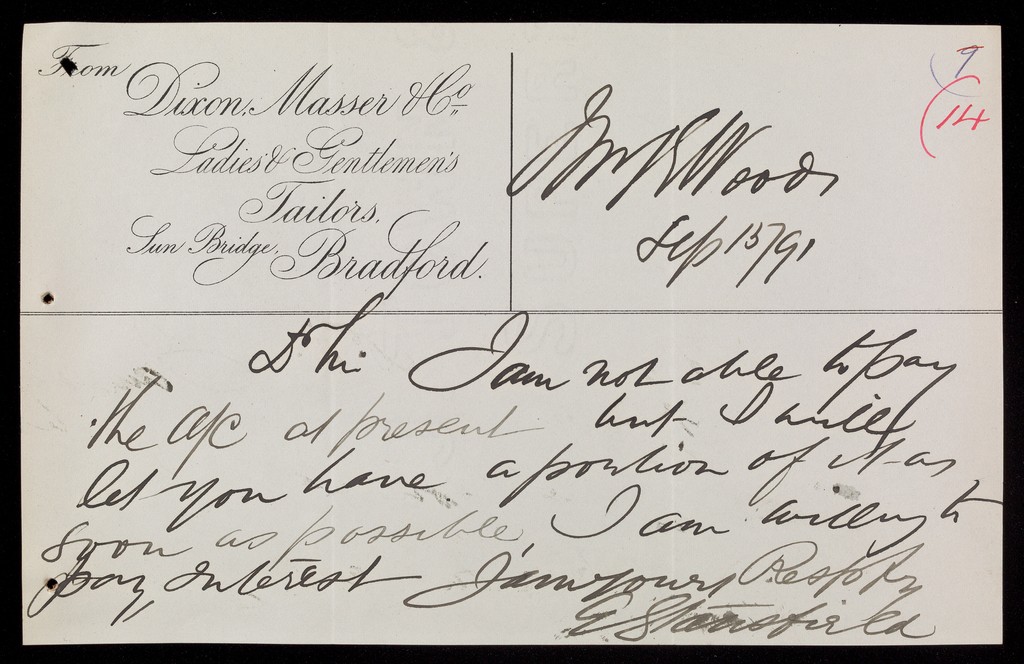 From
Dixon, Masser & Co
Ladies & Gentlemen's
Tailors,
Sun Bridge, Bradford.
9
14
Woods
Sep 15/91
Dr Sir I am not able to pay
the a/c at present but I will
let you have a portion of it as
soon as possible, I am willing to
pay interest I am yours Respfy
E Stansfield